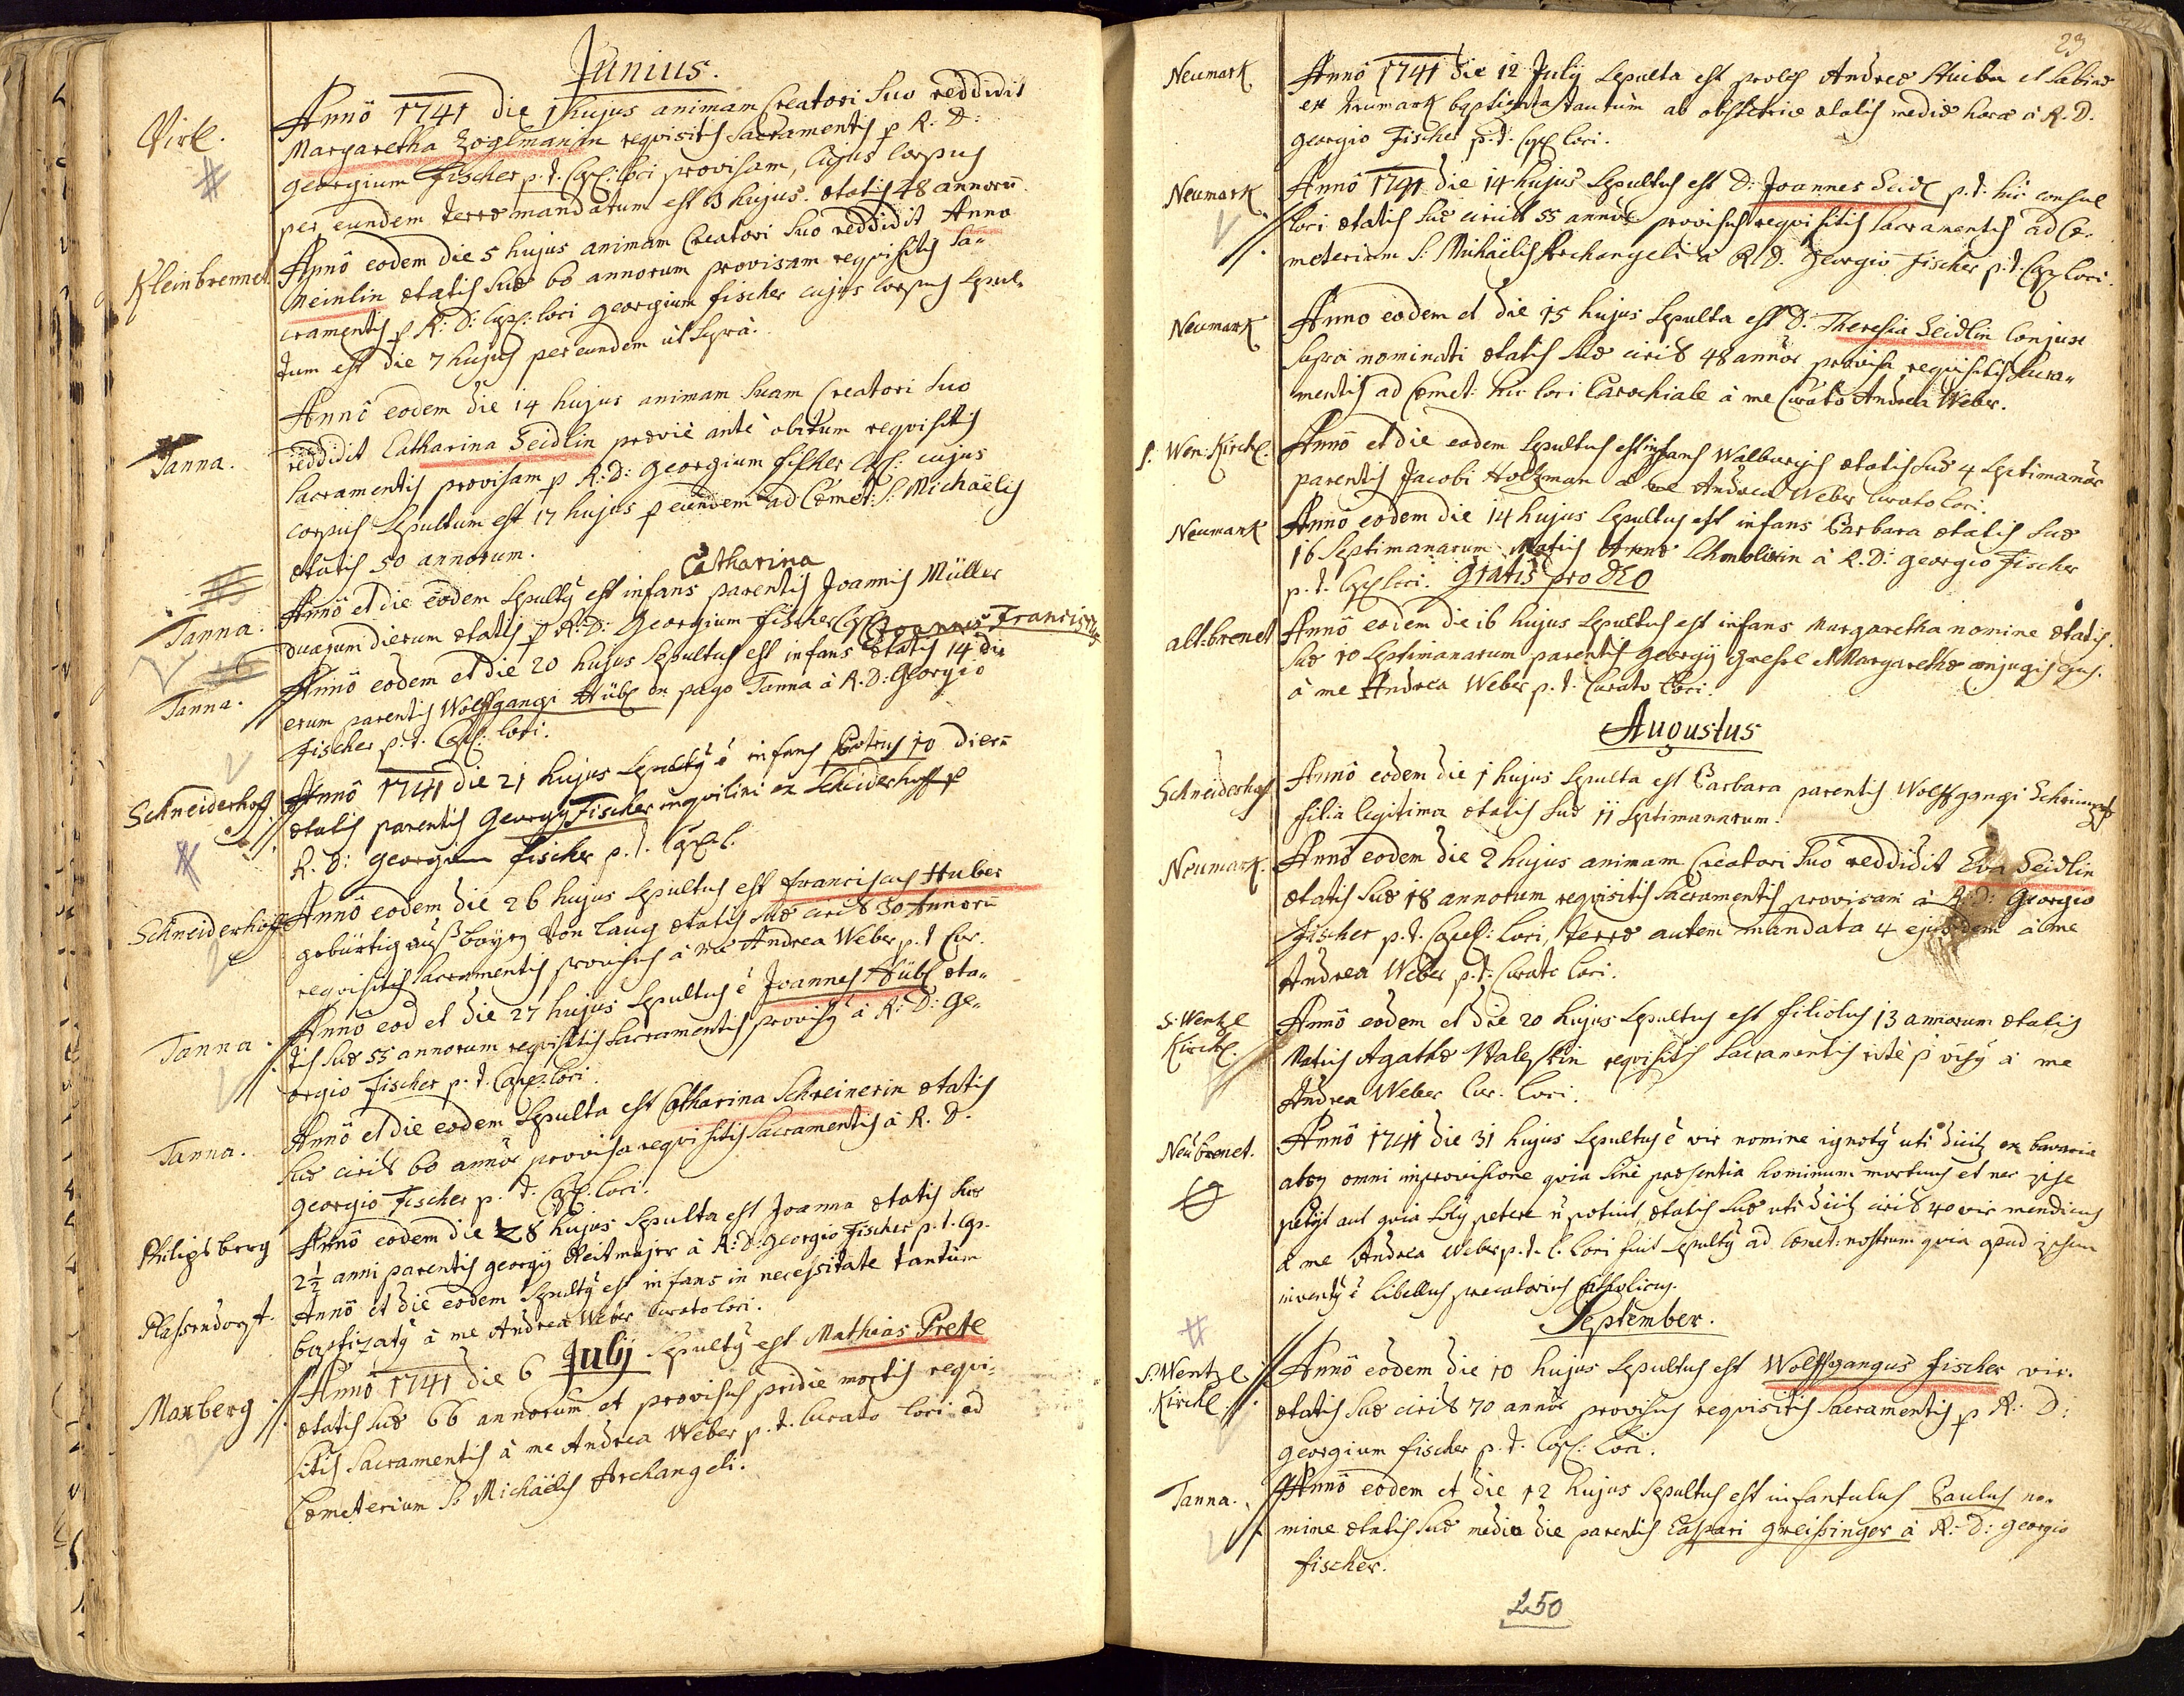 Junius.
Virl.
Annô 1741 die 1 hujus animam Creatori suo reddidit
Margaretha Zoglmanin reqvisitis sacramentis p R: D:
georgium Fischer p. t. Cap: loci provisam, cujus corpus
per eundem terræ mandatum est 3 hujus. ætatis 48 annorū
Kleinbrennet
Annô eodem die 5 hujus animam Creatori suo reddidit Anna
Meinlin ætatis suæ 60 annorum provisam reqvisitis sa-
cramentis p R: D: Cap: loci georgium fischer cujus corpus sepul-
tum est die 7 hujus per eundem ut suprà.
Tanna.
Annô eodem die 14 hujus animam suam Creatori suo
reddidit Catharina Seidlin præviè antè obitum reqvisitis
sacramentis provisam p R: D: georgium fischer Cap: cujus
corpus sepultum est 17 hujus p eundem ad Cœmet: S: Michaëlis
ætatis 50 annorum.
Catharina
Tanna.
Annô et die eodem sepultŷ est infans parentis Joannis Müller
duarum dierum ætatis p R: D: Georgium fischer Cap:
Joannes Franciscus
Tanna.
Annô eodem et die 20 hujus sepultus est infans ætatis 14 di-
erum parentis Wolffgangi Hübl ex pago Tanna à R. D: Georgio
fischer p. t. Cap: loci.
Schneiderhof
Annô 1741 die 21 hujus sepultŷ ê infans Petrus 10 dierū
ætatis parentis Georgy Fischer inqvilini ex Scheiderhoff p
R. D: georgium fischer p. t. Capel.
Schneiderhoff
Annô eodem die 26 hujus sepultus est franciscus Huber
gebürtig auß bayrn von laug ætatis suæ circit 30 Annorū
reqvisitis sacramentis provisus à me Andrea Weber p. t Cur.
Tanna.
Annô eod et die 27 hujus sepultus ê Joannes Hübl æta-
tis suæ 55 annorum reqvisitis sacramentis provisŷ à R: D: Ge-
orgio fischer p. t. Cap: loci.
Tanna.
Annô et die eodem sepulta est Catharina Schreinerin ætatis
suæ circit 60 annôr provisa reqvisitis sacramentis à R. D.
georgio Fischer p. t. Cap: loci.
Philipsberg
Annô eodem die 28 hujus sepulta est Joanna ætatis suæ
2½ anni parentis georgij Reitmajer à R: D: georgio Fischer p. t. Cap.
Plassendorf.
Annô et die eodem sepultŷ est infans in necessitate tantùm
baptizatŷ à me Andrea Weber Curato loci.
Maxberg
Annô 1741 die 6 Julij sepultŷ est Mathias Prete
ætatis suæ 66 annorum et provisus pridiè mortis reqvi-
sitis sacramentis à me Andrea Weber p. t. Curato loci ad
Cœmeterium S. Michaëlis Archangeli.
23
Neumark
Annô 1741 die 12 July sepulta est proles Andreæ Huiber et Sabinæ
ex Neumark baptizata tantùm ab obstetrice ætatis mediæ horæ à R. D.
georgio Fischer p. t: Cap: loci.
Neumark
Annô 1741 die 14 hujus sepultus est D: Joannes Seidl p. t: hic consul
loci ætatis suæ circit 55 annôr provisus reqvisitis sacramentis ad Cœ-
meterium S: Michaëlis Archangeli à R. D. Georgiô fischer p. t. Cap: loci.
Neumark
Anno eodem et die 15 hujus sepulta est D: Theresia Seidlin Conjux
suprà nominati ætatis suæ circit 48 annôr provisa reqvisitis sacra-
mentis ad Cœmet: hic loci Parochiale à me Curato Andrea Weber.
S. Wen: Kirchl.
Annô et die eodem sepultus est infans Walburgis ætatis suæ 4 septimanâr
parentis Jacobi Holzman a me Andrea Weber Curato loci.
Neumark
Annô eodem die 14 hujus sepultus est infans Barbara ætatis suæ
16 septimanarum Matris Annæ à R. D: georgio Fischer
p. t. Cap: loci. Gratis pro DEO
alt:brenet
Annô eodem die 16 hujus sepultus est infans Margaretha nomine ætatis
suæ 10 septimanarum parentis Georgij et Margarethæ conjugis ejus.
à me Andrea Weber p. t. Curato loci.
Augustus
Schneiderhof
Annô eodem die 1 hujus sepulta est Barbara parentis Wolffgangi Schrimpf
filia legitima ætatis suæ 11 septimanarum.
Neumark.
Annô eodem die 2 hujus animam Creatori suo reddidit Eva Seidlin
ætatis suæ 18 annorum reqvisitis sacramentis provisam à R: D: Georgio
Fischer p. t. Capel: loci, terræ autem mandata 4 ejusdem à me
Andrea Weber p. t: Curato loci.
S: Wentzl
Kirchl.
Annô eodem et die 20 hujus sepultus est filiolus 13 annorum ætatis
Matris Agathæ reqvisitis sacramentis ritè à me
Andrea Weber Cur. loci.
Neubrenet.
Annô 1741 die 31 hujus sepultus ê vir nomine ignotŷ uti ex bavaria
absq omni improvisione qvia sine præsentia hominum mortuus et nec ipse
petijt aut qvia petere potuit, ætatis suæ uti circit 40 vir mendicus
à me Andrea Weber p. t. C. loci fuit sepultŷ ad Cœmet: nostrum qvia apud ipsum
inventŷ ê libellus precatorius Catholicus.
September.
S: Wentzl.
Kirchl.
Annô eodem die 10 hujus sepultus est Wolffgangus fischer vir.
ætatis suæ circit 70 annôr provisus reqvisitis sacramentis p R: D:
georgium fischer p. t. Cap: loci.
Tanna.
Annô eodem et die 12 hujus sepultus est infantulus Paulus no-
mine ætatis suæ mediæ die parentis Caspari greissinger à R: D: georgio
fischer.
250